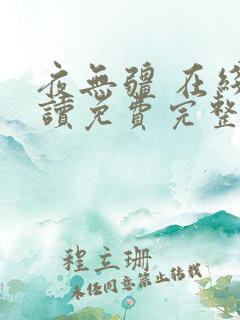 夜無疆 在綫
讀免費完整
程立珊
未经同意禁止转载